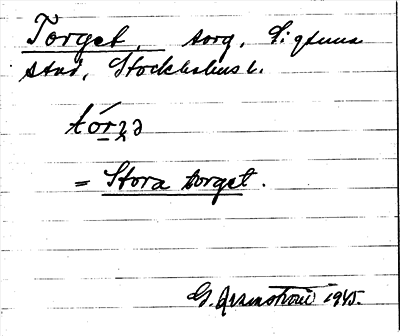 Torget, torg, Sigtuna
stad, Stockholms l.
tórʒə
= Stora torget.
G. 1945.